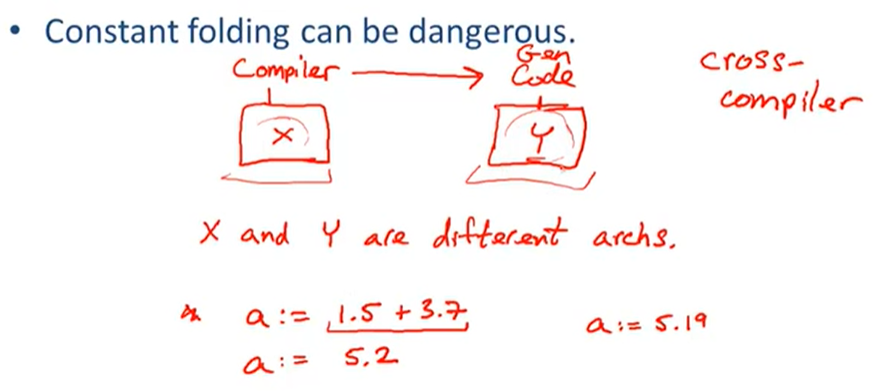 • Constant folding can be dangerous.
Compiler → Gen Code
cross-compiler
X
Y
X and Y are different archs.
a := 1.5 + 3.7
a := 5.19
a := 5.2